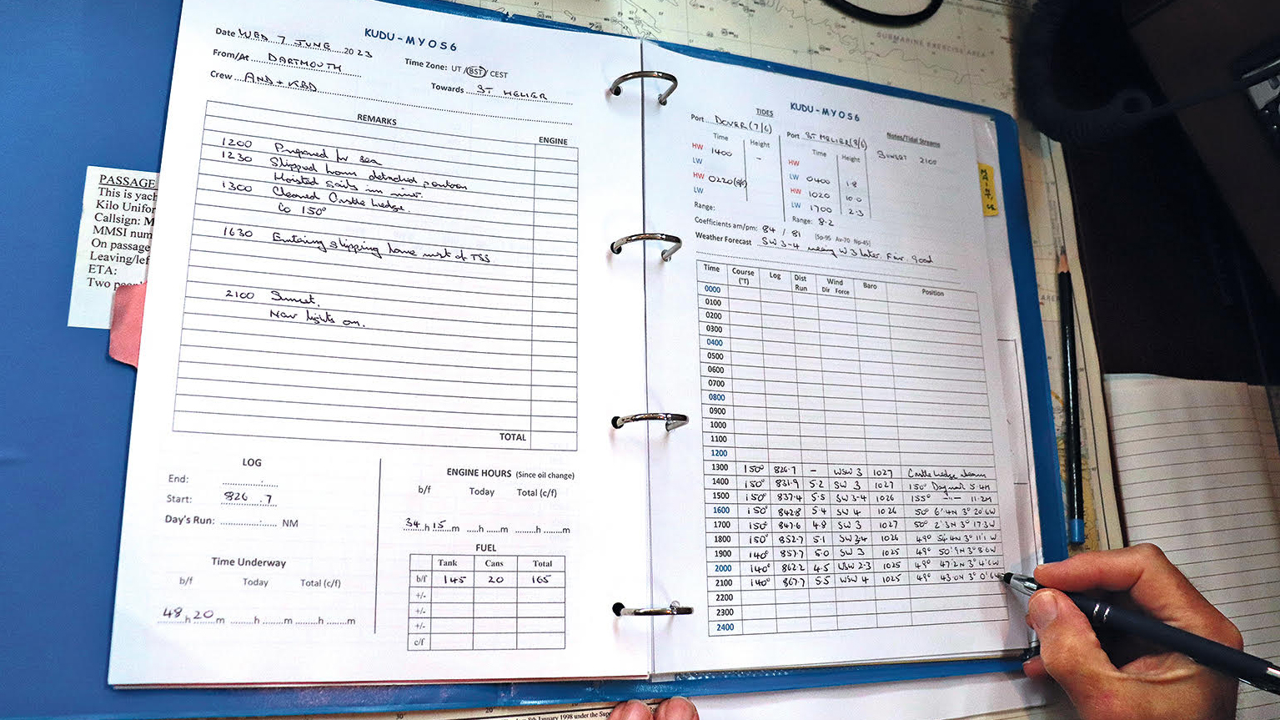 KUDU - MYOS6
Date WED 7 JUNE 2023
From/At DARTMOUTH
Time Zone: UT / BST / CEST
Crew AND + KBD
Towards ST HELIER
REMARKS
ENGINE
1200 Prepared for sea
1230 Slipped from detached pontoon
Hoisted sails in river.
1300 Cleared Castle Ledge.
Co 150°
1630 Entering shipping lane west of TSS
2100 Sunset.
Nav lights on.
TOTAL
LOG
End:
Start: 826.7
Day's Run: NM
Time Underway
b/f Today Total (c/f)
48 h 20 m h m h m
ENGINE HOURS (Since oil change)
b/f Today Total (c/f)
34 h 15 m h m h m
FUEL
Tank Cans Total
b/f 145 20 165
+/-
+/-
+/-
c/f
PASSAGE
This is yach
Kilo Unifor
Callsign: M
MMSI num
On passage
Leaving/lef
ETA:
Two peopl
KUDU - MYOS6
TIDES
Port DOVER (7/6)
Port ST HELIER (8/6)
Notes/Tidal Streams
Time Height
Time Height
SUNSET 2100
HW 1400 -
HW
LW
LW 0400 1.8
HW 0220 (8/6)
HW 1020 10.0
LW
LW 1700 2.3
Range:
Range: 8.2
Coefficients am/pm: 84 / 81 (Sp-95 Av-70 Np-45)
Weather Forecast SW 3-4 veering W 3 later. Fair. Good
Time Course (°T) Log Dist Run Wind Dir Force Baro Position
0000
0100
0200
0300
0400
0500
0600
0700
0800
0900
1000
1100
1200
1300 150° 826.7 - WSW 3 1027 Castle Ledge
1400 150° 831.9 5.2 SW 3 1027 150° Daymark 5.4M
1500 150° 837.4 5.5 SW 3-4 1026 155° -"- 11.2M
1600 150° 842.8 5.4 SW 4 1026 50° 6'.4N 3° 20'.6W
1700 150° 847.6 4.8 SW 3 1027 50° 2'.3N 3° 17'.3W
1800 150° 852.7 5.1 SW 3-4 1026 49° 54'.4N 3° 11'.1W
1900 140° 857.7 5.0 SW 3 1025 49° 50'.9N 3° 8'.6W
2000 140° 862.2 4.5 WSW 2-3 1025 49° 47'.2N 3° 4'.6W
2100 140° 867.7 5.5 WSW 4 1025 49° 43'.0N 3° 0'.6W
2200
2300
2400
SUBMARINE EXERCISE AREA
8th January 1998 under the Supe